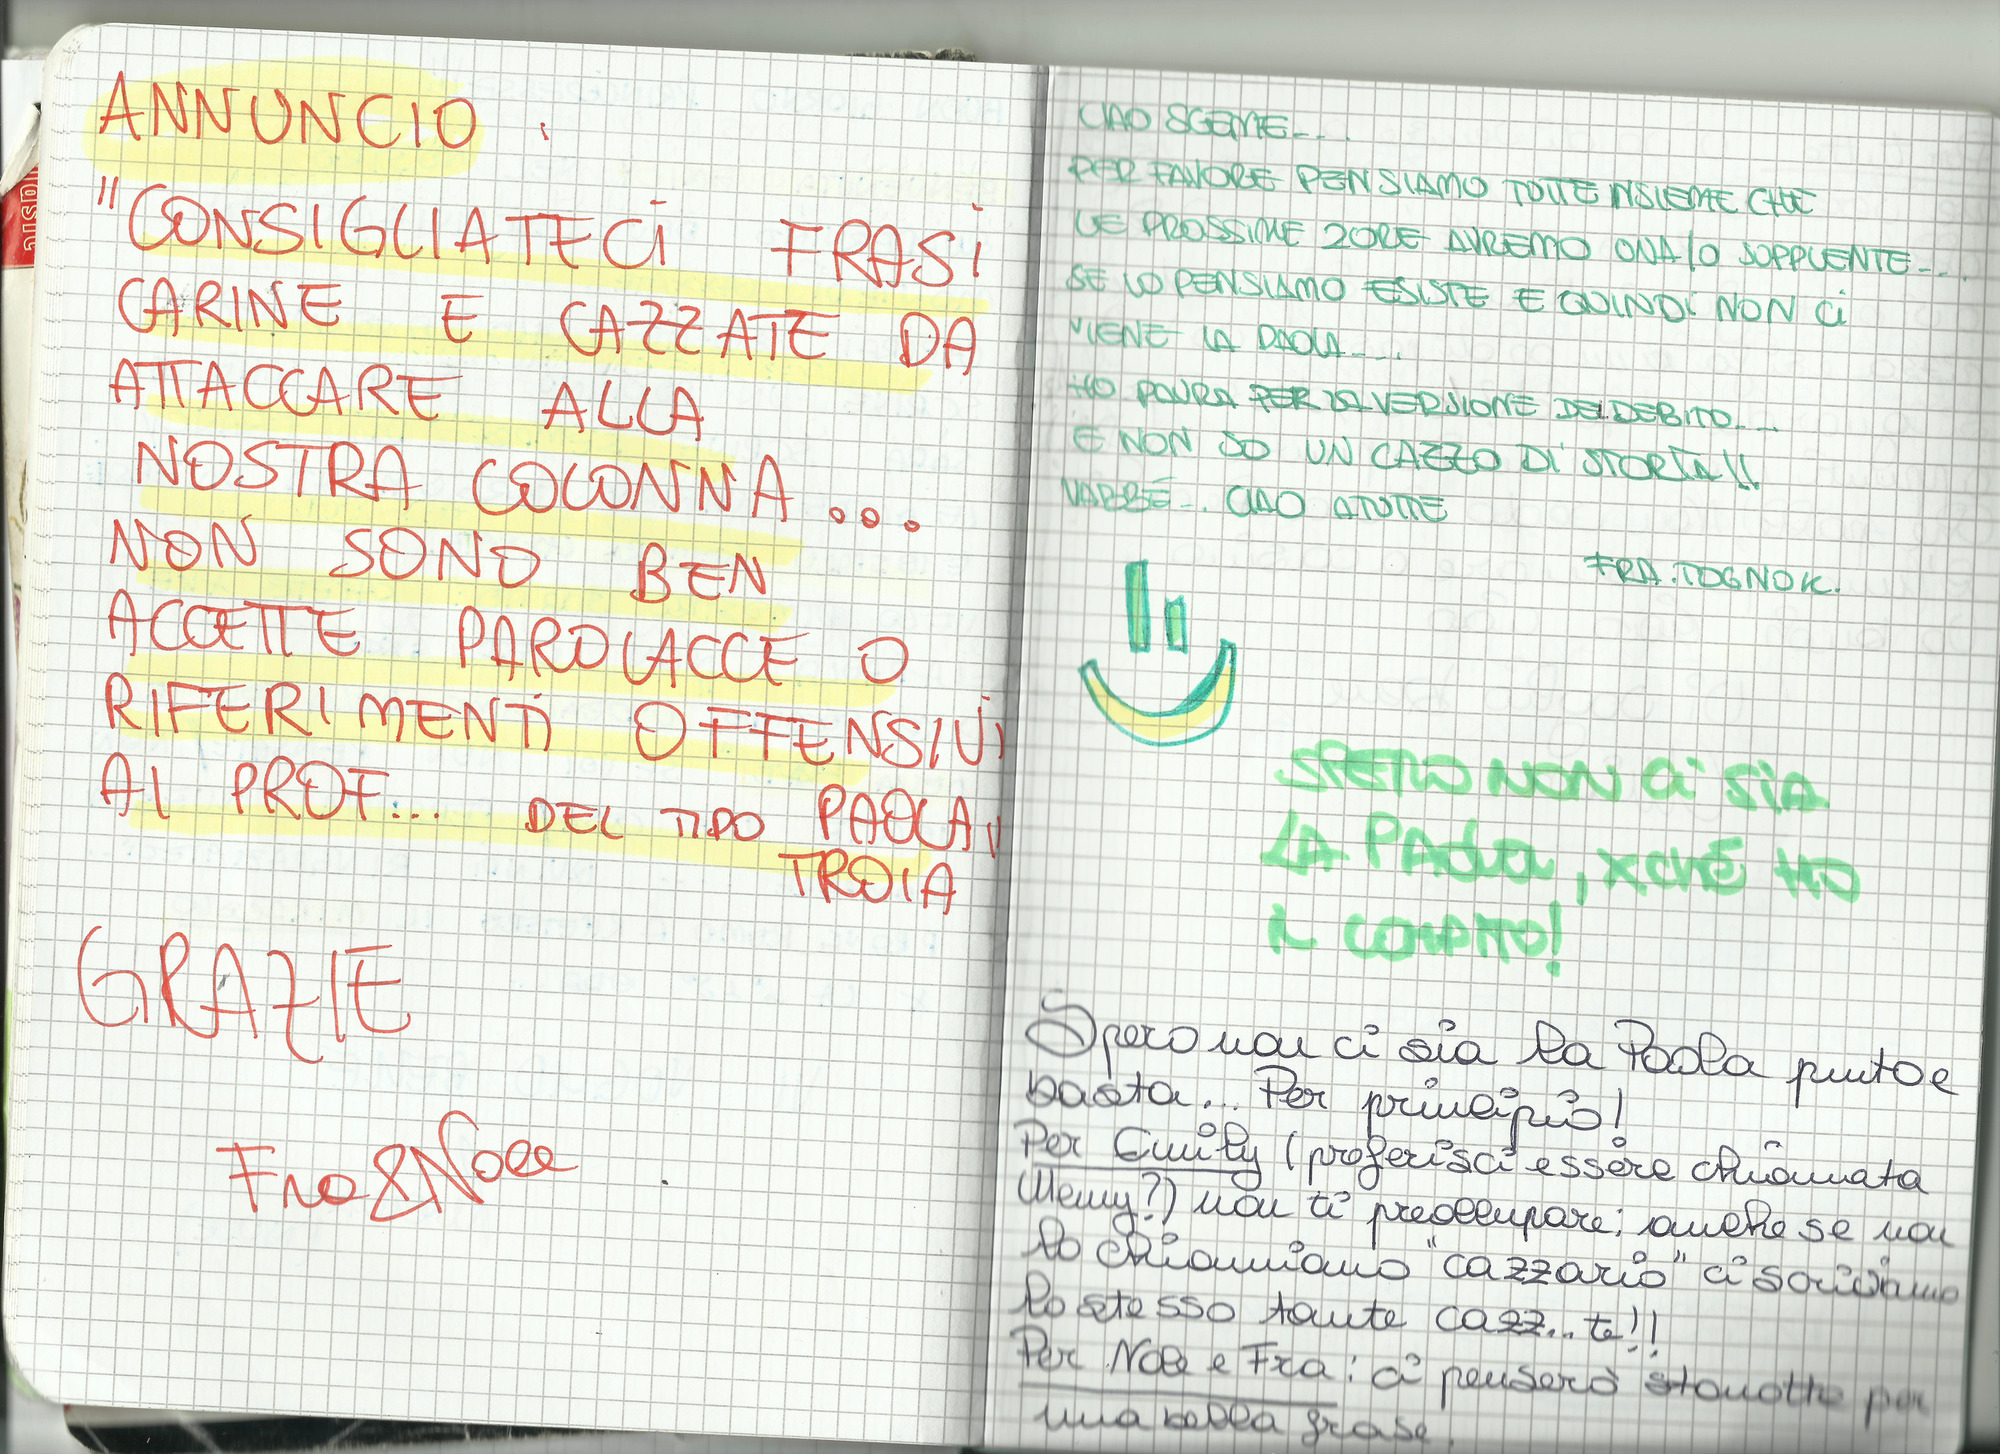 ANNUNCIO :
"CONSIGLIATECI FRASI
CARINE E CAZZATE DA
ATTACCARE ALLA
NOSTRA COLONNA...
NON SONO BEN
ACCETTE PAROLACCE O
RIFERIMENTI OFFENSIVI
AI PROF... DEL TIPO PAOLA
TROIA
GRAZIE
Fra&Noee
CIAO SCEME...
PER FAVORE PENSIAMO TUTTE INSIEME CHE
LE PROSSIME 2 ORE AVREMO UNA/O SUPPLENTE...
SE LO PENSIAMO ESISTE E QUINDI NON CI
VIENE LA PAOLA....
HO PAURA PER LA VERSIONE DEL DEBITO...
E NON SO UN CAZZO DI STORIA!!
VABBÈ... CIAO A TUTTE
FRA.TOGNOK.
SPERO NON CI SIA
LA PAOLA, XCHÈ HO
IL COMPITO!
Spero non ci sia la Paola punto e
basta... Per principio!
Per Emily (preferisci essere chiamata
Memy?) non ti preoccupare; anche se non
lo chiamiamo "cazzario" ci scriviamo
lo stesso tante cazz...te!!
Per Noee e Fra: ci penserò stanotte per
una bella frase.